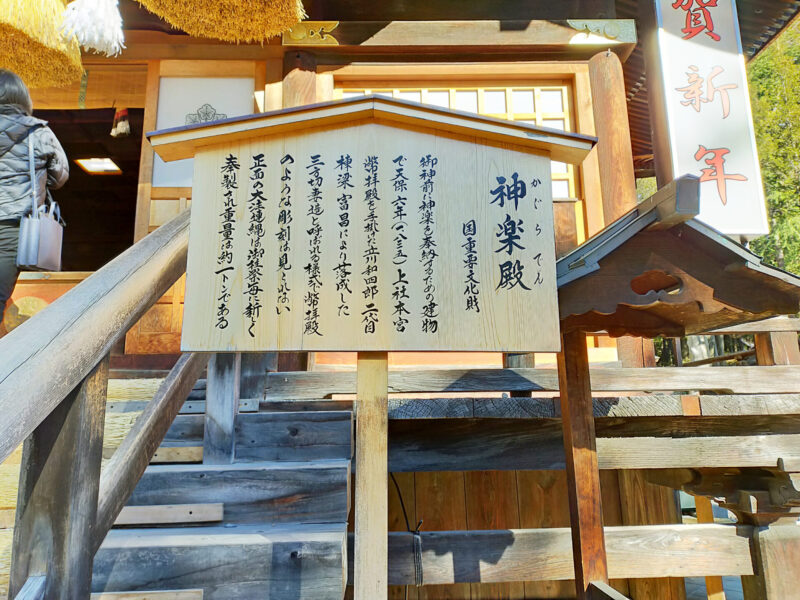 神楽殿
かぐらでん
国重要文化財
御神前に神楽を奉納するための建物
で天保六年(一八三五)上社本宮
幣拝殿を手掛けた立川和四郎二代目
棟梁富昌により落成した
三方切妻造と呼ばれる様式で幣拝殿
のような彫刻は見られない
正面の大注連縄は御柱祭毎に新しく
奉製され重量は約一トンである
賀新年